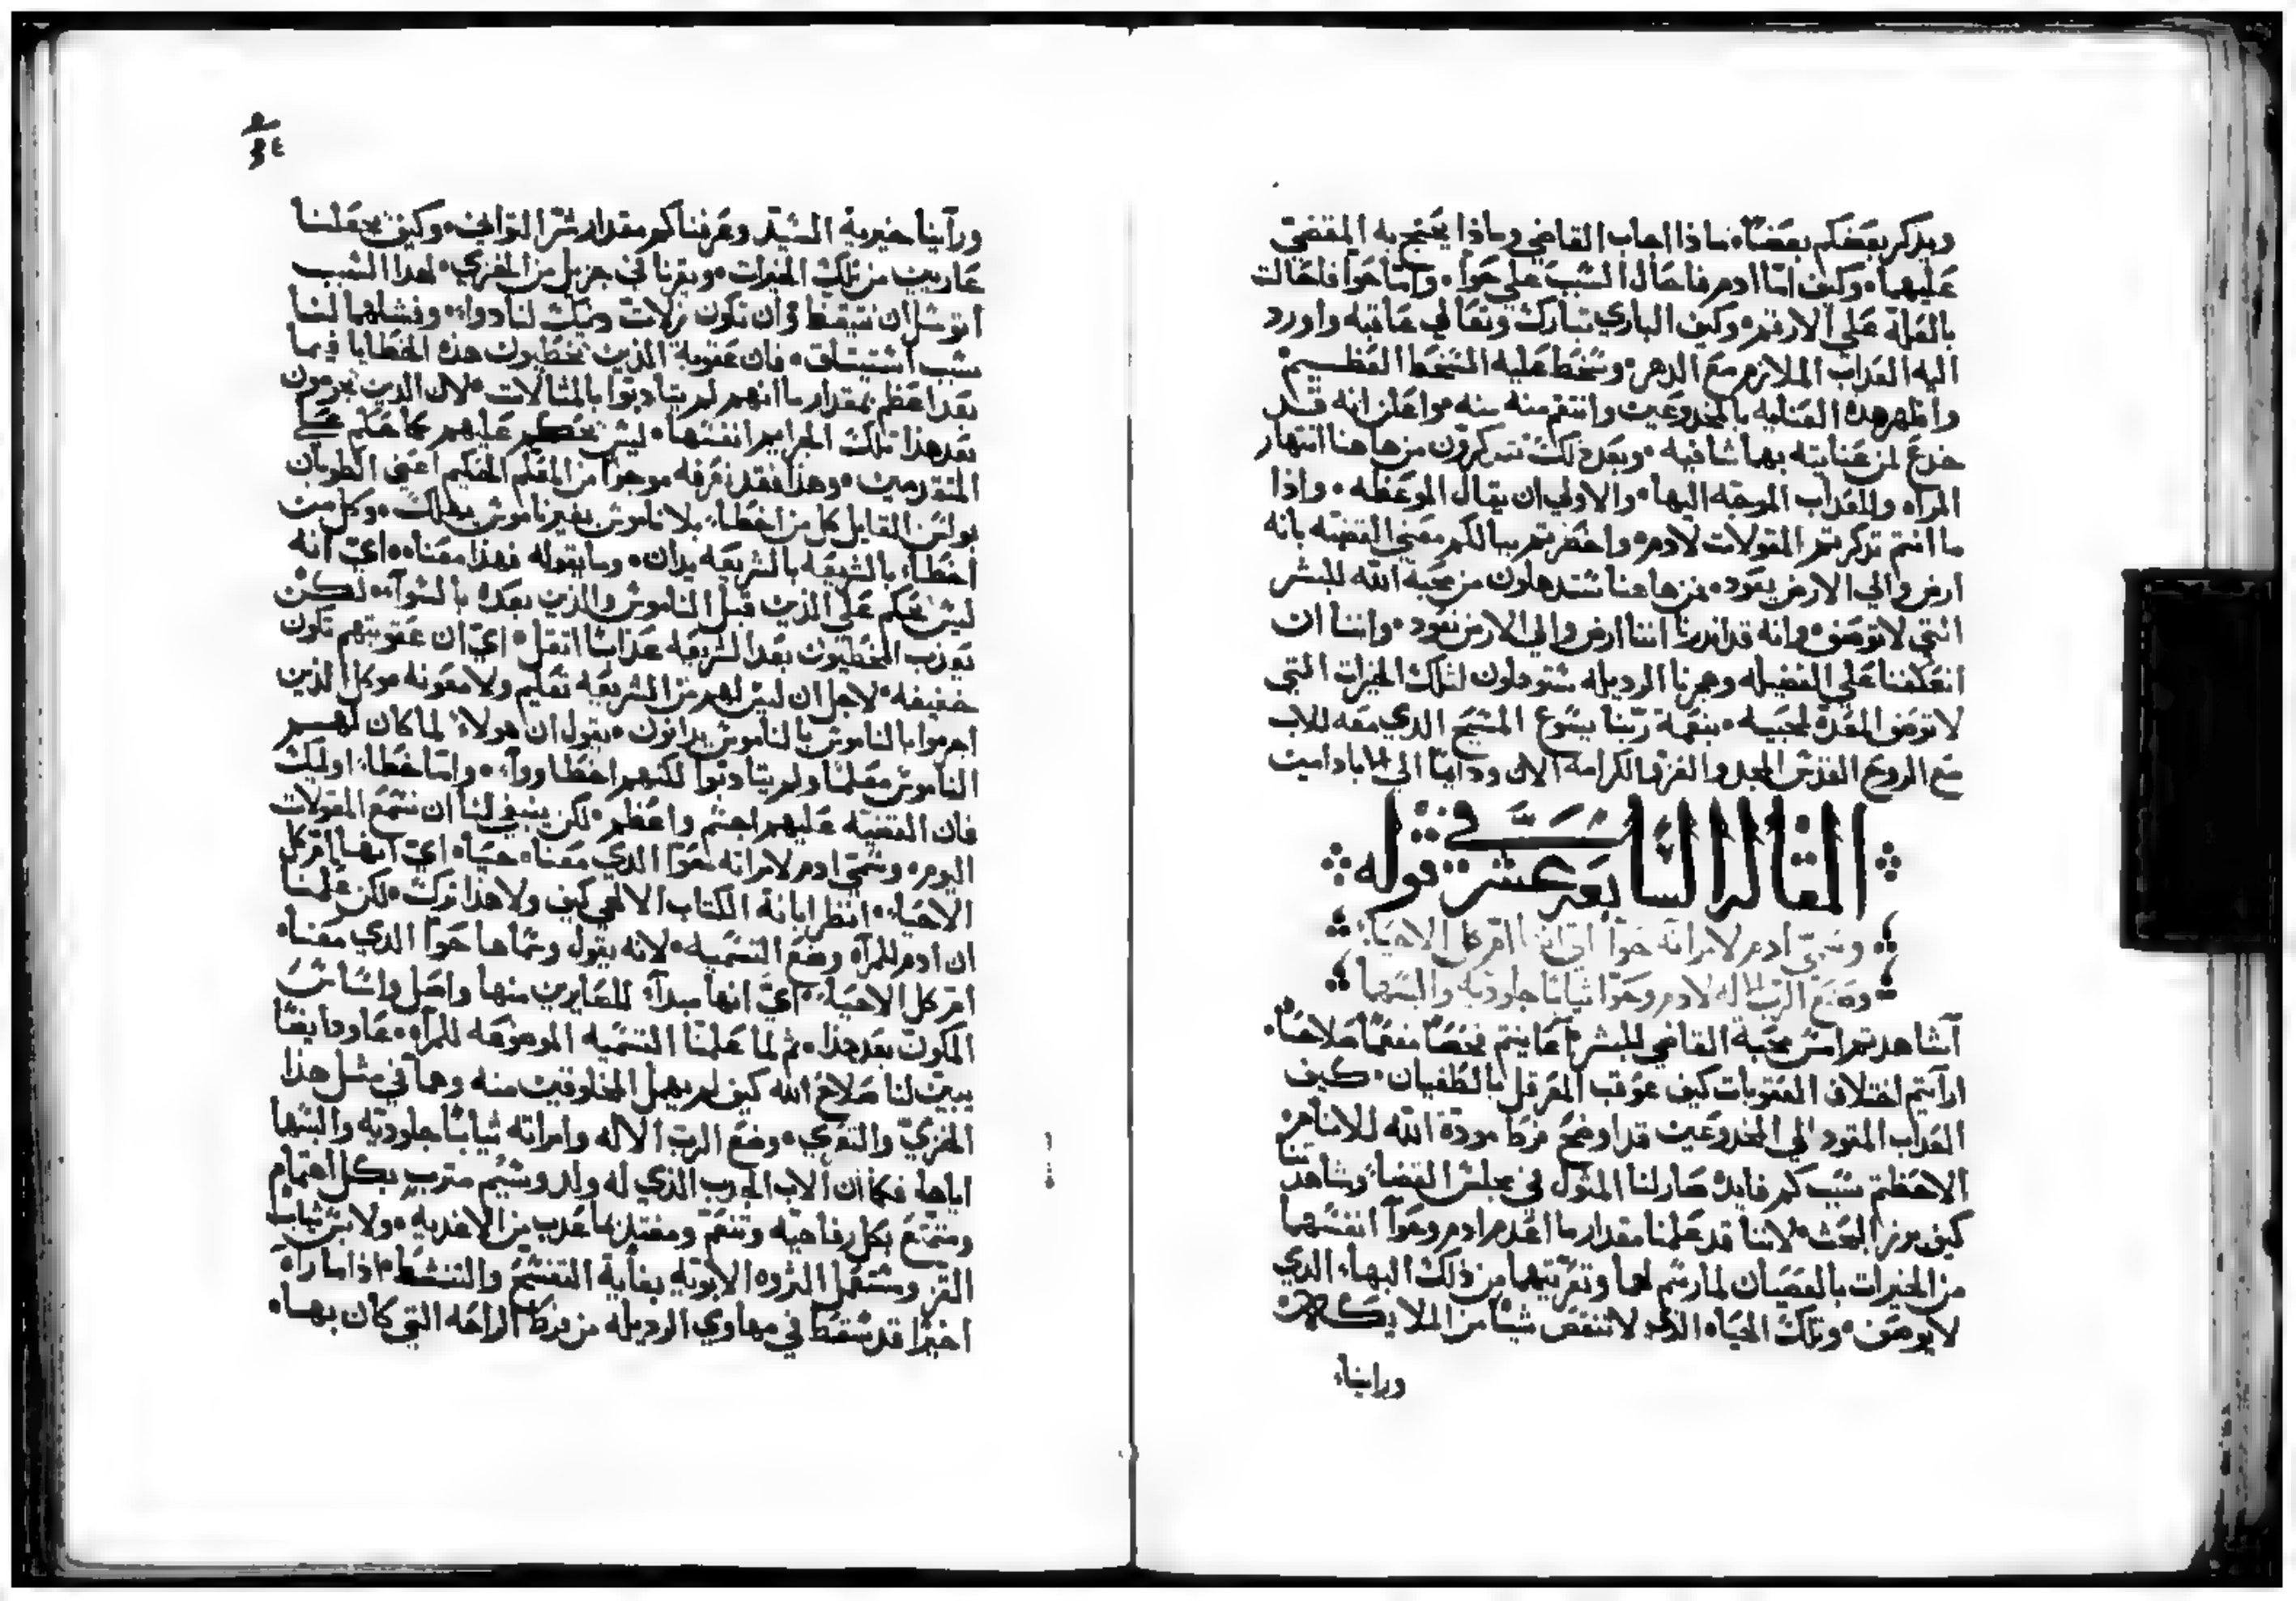 ويدكر بعضكم بعضًا، ماذا اجاب القاضي وماذا يحتج به المقضي
عليهما، وكيف امّا ادم فاحال السبب علي حوا، وامّا حوا فاحالت
بالعلة علي الارقم، وكيف الباري تبارك وتعالي عاقبه واورد
اليه العداب الملازم مع الدهر، وسخط عليه السخط العظيم
واظهر هده العنايه بالمخدوعين وانتقم منه واعلن انه قد
خدع لمن عنايته بهما شافيه، وبعد دلك تتدكرون من هاهنا انتهار
المراه والعداب الموجه اليها، والاولي ان يقال الموعظه، واذا
ما انتم تدكرتم المقولات لادم، واحضرتم ببالكم معني القضيه بانه
ارض والي الارض يعود، فمن هاهنا ستدهلون من محبة الله للبشر
التي لا توصف، وانه قد اندرنا اننا ارض والي الارض نعود، واننا ان
انعكفنا علي الفضيله وهجرنا الرديله ستوهلون لتلك الخيرات التي
لا توصف المعدة لمحبيه، بنعمة ربنا يسوع المسيح الدي معه للاب
مع الروح القدس المجد والعز والكرامه الان ودايمًا الي الاباد امين
المقاله السابعه عشر في قوله
وسمّي ادم لامراته حوا اي انها ام كل الاحيا
وصنع الرب الاله لادم وحوا ثيابًا جلوديه والبسهما
اشاهدتم امس محبة القاضي للبشر، اعاينتم فحصًا مفعمًا صلاحًا،
ارايتم اختلاف العقوبات كيف عوقب المعرقل بالطغيان، كيف
العداب المتورد الي المخدوعين قد اوضح فرط مودة الله للانام
الاعظم سبب كم فايدة صار لنا المثول في مجلس القضا، وشاهدنا
كيف برز البحث، لاننا قد علمنا مقدار ما اعدم ادم وحوا انفسهما
من الخيرات بالعصيان لما رسم لهما وتعريتهما من ذلك البهاء الدي
لا يوصف، وتلك الحياه التي لا تنقص شيًا من الملايكه
وراينا
وراينا خيرية السيد وعرفنا كم مقدار شر التواني، وكيف يجعلنا
عاريين من تلك الخيرات، ويقرنا في جزيل من الخزي، لهدا السبب
اتوسل ان نتيقظ وان تكون زلات دينك لنا دواء، وفشلهما لنا
سبب استيثاق، فان عقوبة الذين يخطيون هذه الخطايا فيما
بعد اعظم بمقدار ما انهم لم يتادبوا بالمثالات، لان الدين يجرمون
بعد هذا تلك الجرايم انفسها، ليس يحكم عليهم كما حكم علي
المتقدمين، وهذا فقد نعرفه موجزًا من المعلم الحكيم اعني الطوبان
بولس القايل كل من اخطا، بلا ناموس بغير ناموس يهلك، وكل من
اخطا، بالشريعه بالشريعه يدان، وما يقوله فهذا معناه، اي انه
ليس يحكم علي الذين قبل الناموس والذين بعده بالسوآء، لكن
يعذب المخطيون بعد الشريعه عذابًا اثقل، اي ان عقوبتهم تكون
خفيفه، لاجل ان ليس لهم من الشريعه تعليم ولا معونه، وكل الذين
اجرموا بالناموس بالناموس يدانون، يقول ان هولاء لما كان لهم
الناموس معلمًا ولم يتادبوا لكنهم اخطاووا، وامّا خطاء اوليك
فان القضيه عليهم اجسم واعظم، لكن ينبغي لنا ان نسمع المقولات
اليوم، وسمّي ادم لامراته حوا الذي معناه حياه، اي انها ام كل
الاحيا، انظر ابانة الكتاب الالهي كيف ولا هذا ترك، لكن علمنا
ان ادم للمرآه وضع التسميه، لانه يقول وسماها حوّا الدي معناه،
ام كل الاحيا، اي انها مبدآء للصايرين منها واصل واساس
المكون بعد هذا، ثم لما علمنا التسميه الموضوعه للمرآه، عاد وايضًا
يبين لنا صلاح الله كيف لم يهمل المخلوقين منه وهما في مثل هذا
الخزي والتعري، وصنع الرب الاله وامراته ثيابًا جلوديه والبسهما
اياها، فكما ان الاب الذي له ولد وسيم متربٍ بكل اهتمام
ومتمتع بكل رفاهيه وتنعم ومغتدٍ بما عدب من الاغديه، ولابس ثياب
القز ومستعمل الثروه الابويه بغاية التفسح والتنشط، اذا ما رآه
اخيرًا قد سقط في مهاوي الرديله من فرط الراحه التي كان بها،